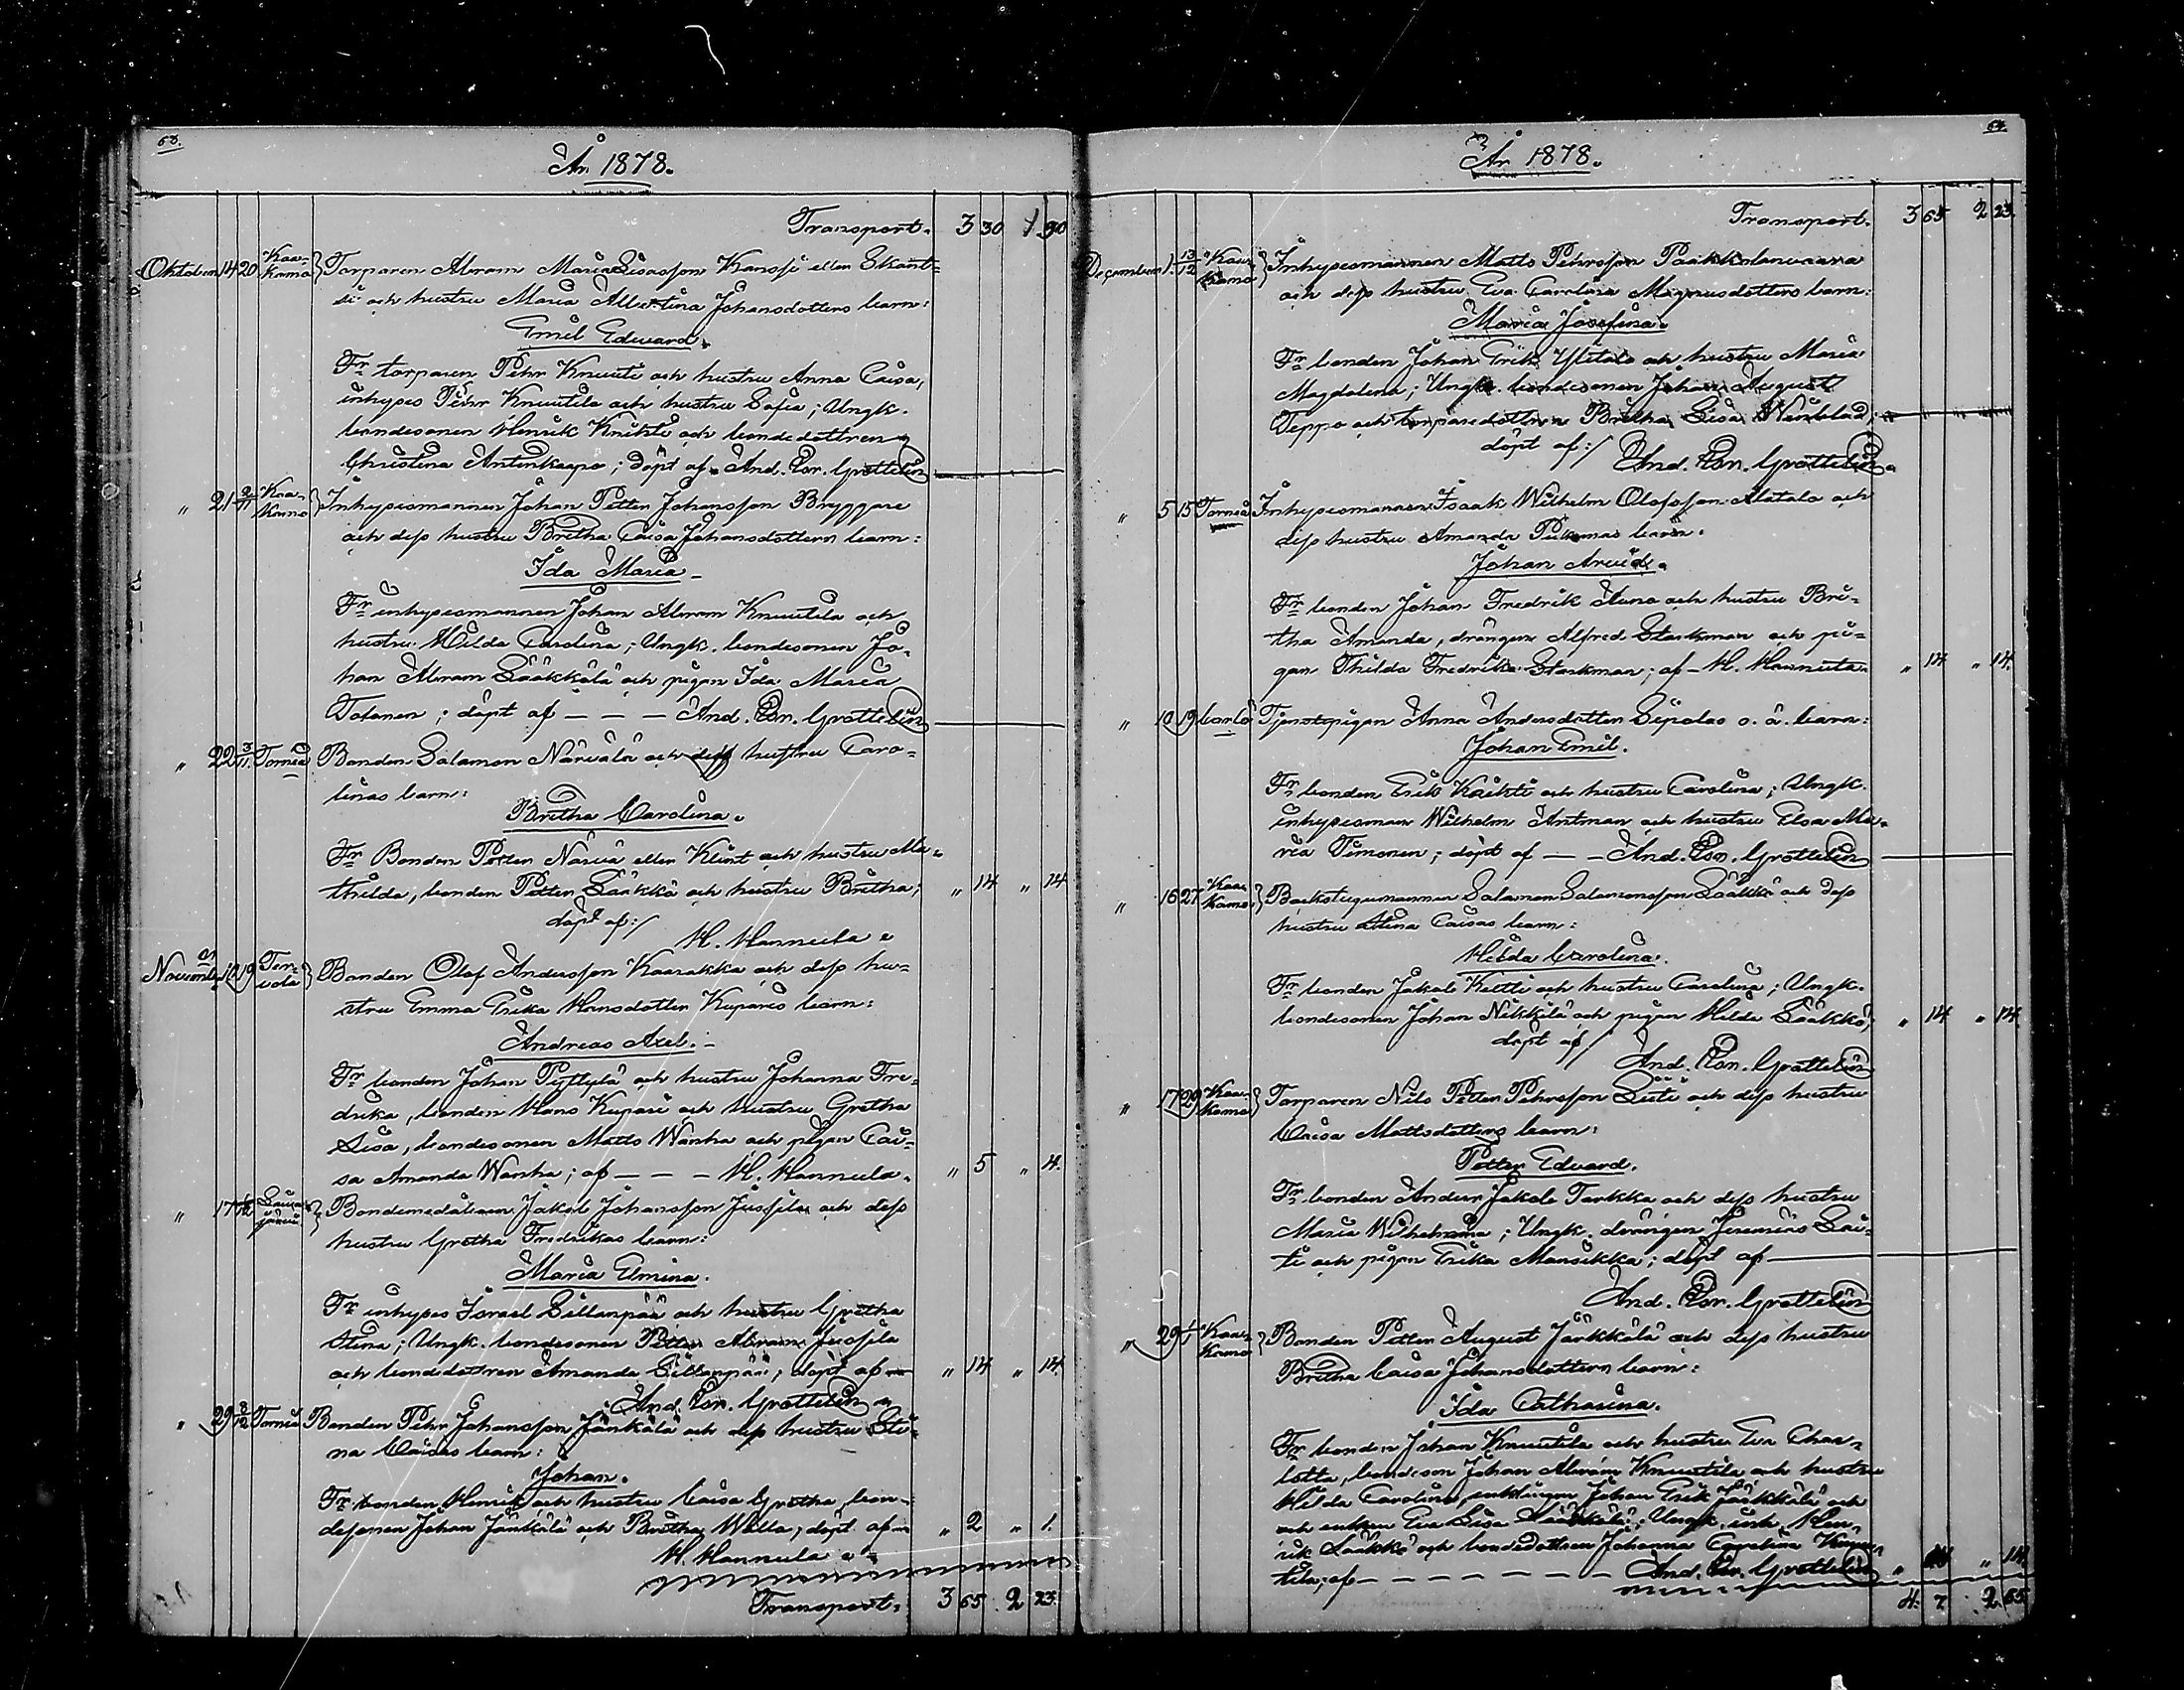 63.
År 1878.
Transport. 3 30 1 90
Oktober 14 20 Kaa-
kama } Torparen Abram MariaLisasson Kanssi eller Skant-
si och hustru Maria Albertina Johansdotters barn:
Emil Edward.
Fr torparen Pehr Knuuti och hustru Anna Caisa,
inhyses Pehr Knuutila och hustru Sofia; Ungk.
bondesonen Henrik Knihti och bondedottren
Christina Antinkaapo; döpt af And. Con. Grottelin
" 21 2/11 Kaa-
kama } Inhysesmannen Johan Petter Johansson Bryggare
och dess hustru Britha Caisa Johansdotters barn:
Ida Maria
Fr inhysesmannen Johan Abram Knuutila och
hustru Hilda Carolina; Ungk. bondesonen Jo-
han Abram Lääkkälä och pigan Ida Maria
Tolonen; döpt af — — — And. Con. Grottelin
" 22 3/11 Torneå Bonden Salamon Närvälä och dess hustru Caro-
linas barn:
Britha Carolina.
Fr Bonden Petter Närvä eller Klint och hustru Ma-
thilda, bonden Petter Lääkkö och hustru Britha; " 14 " 14
döpt af:/
H. Hannula
November 10 19 Ter-
vola } Bonden Olof Andersson Kaarakka och dess hu-
stru Emma Erika Hansdotter Kuparis barn:
Andreas Axel.
Fr bonden Johan Pyttylä och hustru Johanna Fre-
drika, bonden Hans Kupari och hustru Gretha
Lisa, bondesonen Matts Wanha och pigan Cai-
sa Amanda Wanha; af — — — H. Hannula. " 5 " 4.
" 17 Bondemedålaren Jakob Johansson Jussila och dess
hustru Gretha Fredrikas barn:
Maria Elmina.
Fr inhyses Israel Sillanpää och hustru Gretha
Stina; Ungk. bondesonen Petter Abram Jussila
och bondedottren Amanda Sillanpää; döpt af " 14 " 14.
And. Con. Grottelin
" 29 3/12 Torneå Bonden Pehr Johansson Jänkälä och dess hustru Sti-
na Caisas barn:
Johan.
Fr bonden Henrik och hustru Caisa Gretha, bon-
desonen Johan Jänkälä och Britha Willa; döpt af " 2 " 1.
H. Hannula
Transport. 3 65 2 23.
64.
År 1878.
Transport. 3 65 2 23.
December 1. 13/12 Kaa-
kama } Inhysesmannen Matts Pehrsson Paakkolanvaara
och dess hustru Eva Carolina Magnusdotters barn:
Maria Josefina.
Fr bonden Johan Erik Ylitalo och hustru Maria
Magdalena; Ungk. bondesonen Johan August
Seppo och torparedottren Britha Lisa Wänblad;
döpt af:/ And. Con. Grottelin
" 5 15 Torneå Inhysesmannen Isaak Wilhelm Olofsson Alatalo och
dess hustru Amanda barn:
Johan Arvid.
Fr bonden Johan Fredrik Auno och hustru Bri-
tha Amanda, drängen Alfred Starkman och pi-
gan Thilda Fredrika Starkman; af — H. Hannula " 14 " 14.
" 10 19 Carlö Tjenstepigan Anna Andersdotter Sipolas o. ä. barn:
Johan Emil.
Fr bonden Erik Knihti och hustru Carolina; Ungk.
inhysesman Wilhelm Antman och hustru Elsa Ma-
ria Timonen; döpt af — — And. Con. Grottelin
" 16 27 Kaa-
kama } Backstugumannen Salamon Salamonsson Lääkkö och dess
hustru Stina Caisas barn:
Hilda Carolina.
Fr bonden Jakob Keltti och hustru Carolina; Ungk.
bondesonen Johan Nikkilä och pigan Hilda Lääkkö; " 14 " 14
döpt af/
And. Con. Grottelin
" 17 29 Kaa-
kama } Torparen Nils Petter Pehrsson Liiti och dess hustru
Caisa Mattsdotters barn:
Petter Edvard.
Fr bonden Anders Jakob Tarkka och dess hustru
Maria Wilhelmina; Ungk. drängen Jeremias Lai-
ti och pigan Erika Mansikka; döpt af
And. Con. Grottelin
" 29 1/1 Kaa-
kama } Bonden Petter August Järkkälä och dess hustru
Britha Caisa Johansdotters barn:
Ida Catharina.
Fr bonden Johan Knuutila och hustru Eva Char-
lotta, bondeson Johan Abram Knuutila och hustru
Hilda Carolina, enklingen Johan Erik Järkkälä och
och enkan Eva Lisa Lääkkälä; Ungk. inh. Hen-
rik Lääkkö och bondedottren Johanna Carolina Knuu-
tila; af — — — — — And. Con. Grottelin " 14 " 14.
4. 7 2 65